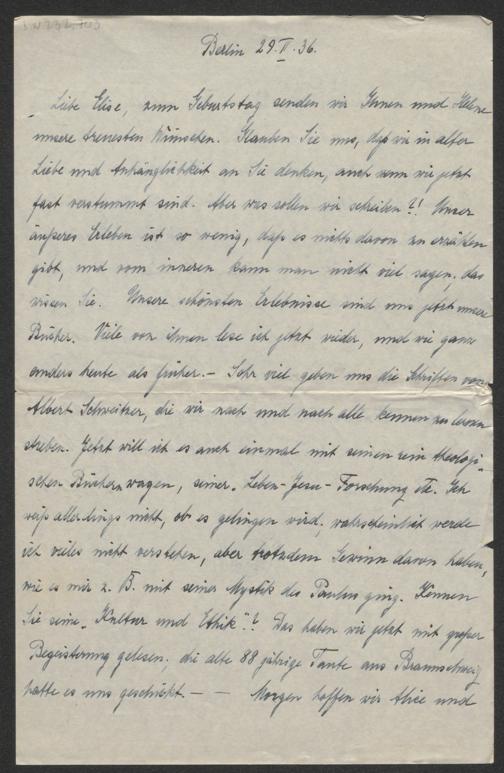 Berlin 29. V. 36.
Liebe Elise, zum Geburtstag senden wir Ihnen und Helene
unsere treuesten Wünsche. Glauben Sie uns, daß wir in alter
Liebe und Anhänglichkeit an Sie denken, auch wenn wir jetzt
fast verstummt sind. Aber was sollen wir schreiben?! Unser
äußeres Erleben ist so wenig, daß es nichts davon zu erzählen
gibt, und vom inneren kann man nicht viel sagen, das
wissen Sie. Unsere schönsten Erlebnisse sind uns jetzt unsere
Bücher. Viele von ihnen lese ich jetzt wieder, und wie ganz
anders heute als früher. – Sehr viel geben uns die Schriften von
Albert Schweitzer, die wir nach und nach alle kennen zu lernen
streben. Jetzt will ich es auch einmal mit seinen rein theologi-
schen Büchern wagen, seiner „Leben-Jesu-Forschung etc. Ich
weiß allerdings nicht, ob es gelingen wird, wahrscheinlich werde
ich vieles nicht verstehen, aber trotzdem Gewinn davon haben,
wie es mir z. B. mit seiner Mystik des Paulus ging. Kennen
Sie seine „Kultur und Ethik"? Das haben wir jetzt mit großer
Begeisterung gelesen. die alte 88 jährige Tante aus Braunschweig
hatte es uns geschickt. – – Morgen hoffen wir Alice und